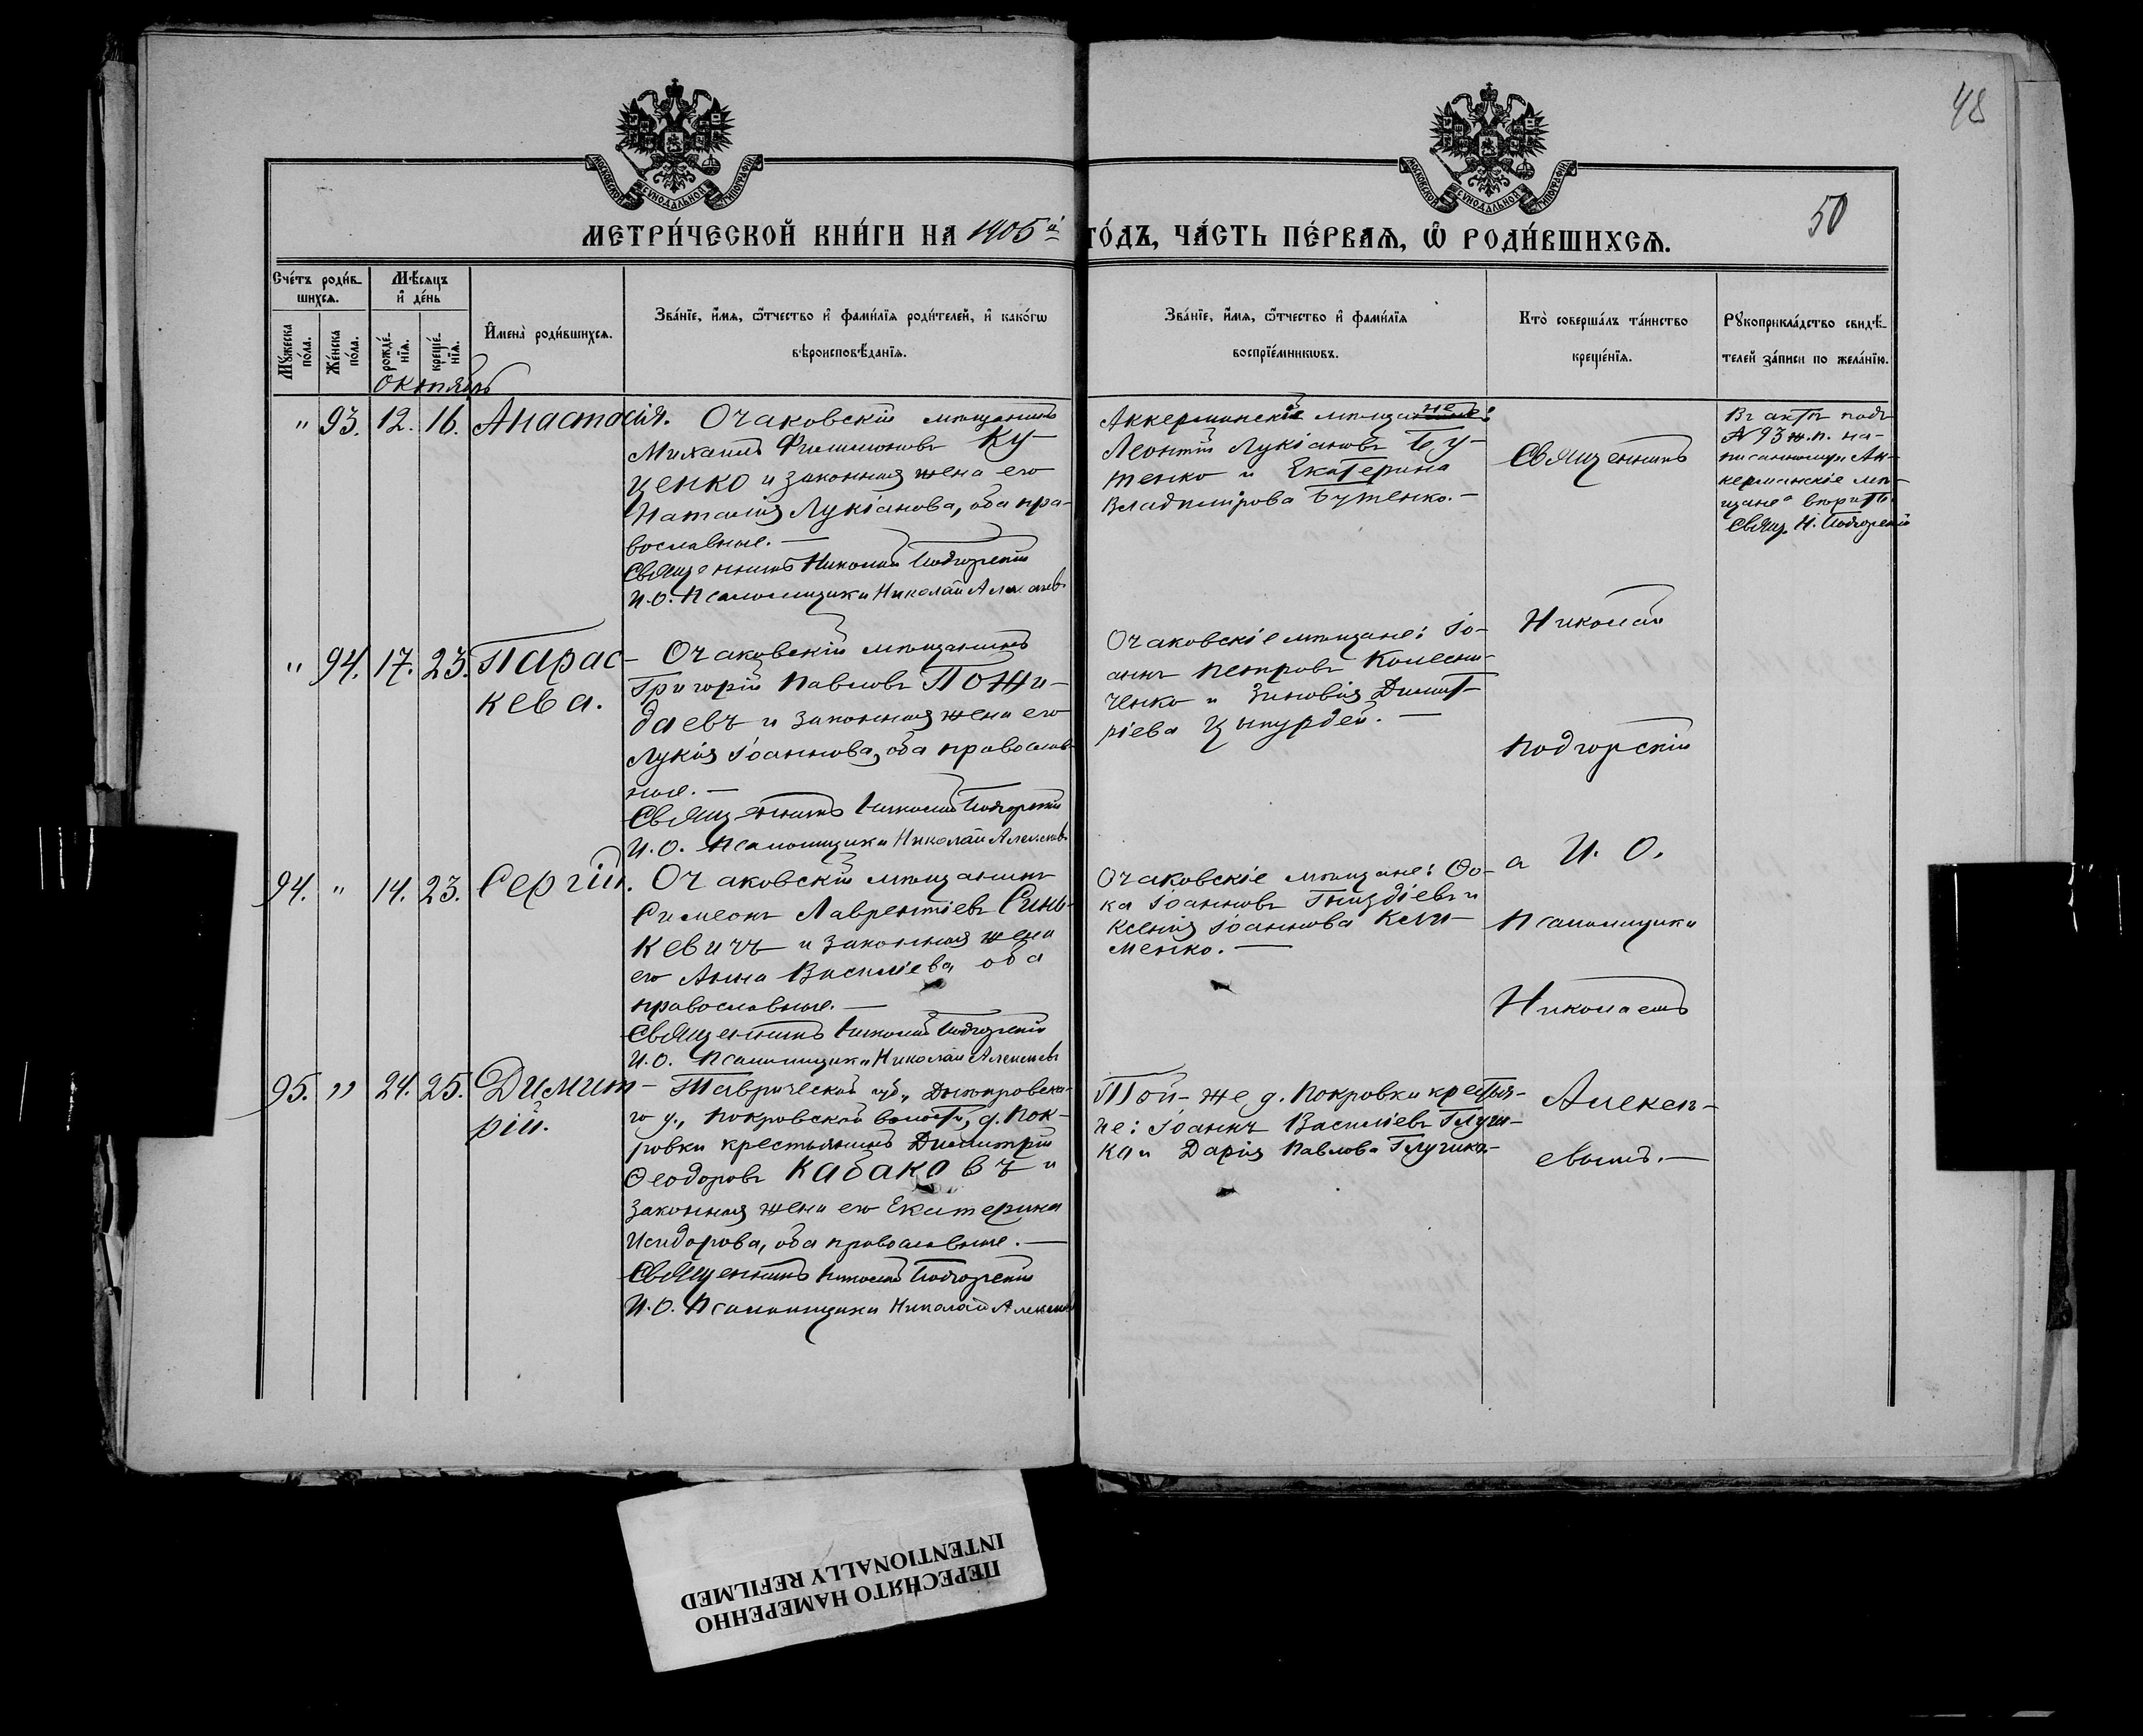 48
МОСКОВСКОЙ СѴНОДАЛЬНОЙ ТИПОГРАФІИ
МОСКОВСКОЙ СѴНОДАЛЬНОЙ ТИПОГРАФІИ
50
МЕТРИ́ЧЕСКОЙ КНИ́ГИ НА 1905й ГО́ДЪ, ЧА́СТЬ ПЕ́РВАѦ, Ѡ РОДИ́ВШИХСѦ.
Сче́тъ роди́в-
шихсѧ.
Мѹ́жеска по́ла.
Же́нска по́ла.
Мѣ́сѧцъ
и де́нь
рожде́-
нїѧ.
креще́-
нїѧ.
Имена̀ роди́вшихсѧ.
Зва́нїе, и́мѧ, ѻ́тчество и фами́лїѧ роди́телей, и како́гѡ
вѣроисповѣ́данїѧ.
Зва́нїе, и́мѧ, ѻ́тчество и фами́лїѧ
воспрїе́мникѡвъ.
Кто̀ соверша́лъ та́инство
креще́нїѧ.
Рѹкоприкла́дство свидѣ́-
телей за́писи по жела́нїю.
Октябрь
" 93. 12. 16. Анастасія.
Очаковскій мѣщанинъ
Михаилъ Филимоновъ Ку-
ценко и законная жена его
Наталія Лукіанова, оба пра-
вославные. —
Священникъ Николай Подгорскій
И.О. Псаломщика Николай Алексѣевъ
Аккерманскіе мѣщане:
Леонтій Лукіановъ Бу-
тенко и Екатерина
Владимірова Бутенко. —
Въ актѣ подъ
№ 93 ж.п. на-
писанному Ак-
керманскіе мѣ-
щане вѣрить.
Свящ. Н. Подгорскій
" 94. 17. 23. Парас-
кева.
Очаковскій мѣщанинъ
Григорій Павловъ Пожи-
даевъ и законная жена его
Лукія Іоаннова, оба православ-
ные. —
Священникъ Николай Подгорскій
И.О. Псаломщика Николай Алексѣевъ
Очаковскіе мѣщане: Іо-
аннъ Петровъ Колесни-
ченко и Зиновія Димит-
ріева Цыпурдей. —
94. " 14. 23. Сергій.
Очаковскій мѣщанинъ
Симеонъ Лаврентіевъ Синь-
кевичъ и законная жена
его Анна Василіева, оба
православные. —
Священникъ Николай Подгорскій
И.О. Псаломщика Николай Алексѣевъ
Очаковскіе мѣщане: Ѳо-
ка Іоанновъ Гнѣздіевъ и
Ксенія Іоаннова Кли-
менко. —
95. " 24. 25. Димит-
рій.
Таврической губ., Днѣпровска-
го у., Покровской волости, д. Пок-
ровки крестьянинъ Димитрій
Ѳеодоровъ Кабаковъ и
законная жена его Екатерина
Исидорова, оба православные. —
Священникъ Николай Подгорскій
И.О. Псаломщика Николай Алексѣевъ
Той-же д. Покровки крестья-
не: Іоаннъ Василіевъ Глуш-
ка и Дарія Павлова
Священникъ
Николай
Подгорскій
а И. О.
Псаломщика
Николаемъ
Алексѣ-
евымъ. —
ПЕРЕСНЯТО НАМЕРЕННО
INTENTIONALLY REFILMED